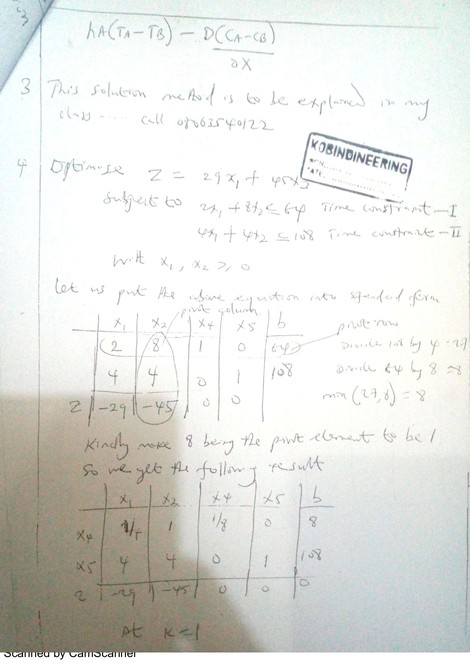 3
hA(TA-TB) - D(CA-CB)
∂X
3 This solution method is to be explained in my
class ..... call
KOBINDINEERING
4 Optimise Z = 29x₁ + 45x₂
Subject to 2x₁ + 8x₂ ≤ 64 Time constraint - I
4x₁ + 4x₂ ≤ 108 Time constraint - II
With x₁, x₂ ≥ 0
Let us put the above equation into standard form
pivot column
x₁ x₂ x4 x5 b pivot row
2 8 1 0 64 Divide 108 by 4 = 27
4 4 0 1 108 Divide 64 by 8 = 8
Z -29 -45 0 0 min (27,8) = 8
Kindly make 8 being the pivot element to be 1
So we get the following result
x₁ x₂ x4 x5 b
x4 1 1/8 0 8
x5 4 4 0 1 108
Z -29 -45 0 0 0
At K=1
Scanned by CamScanner